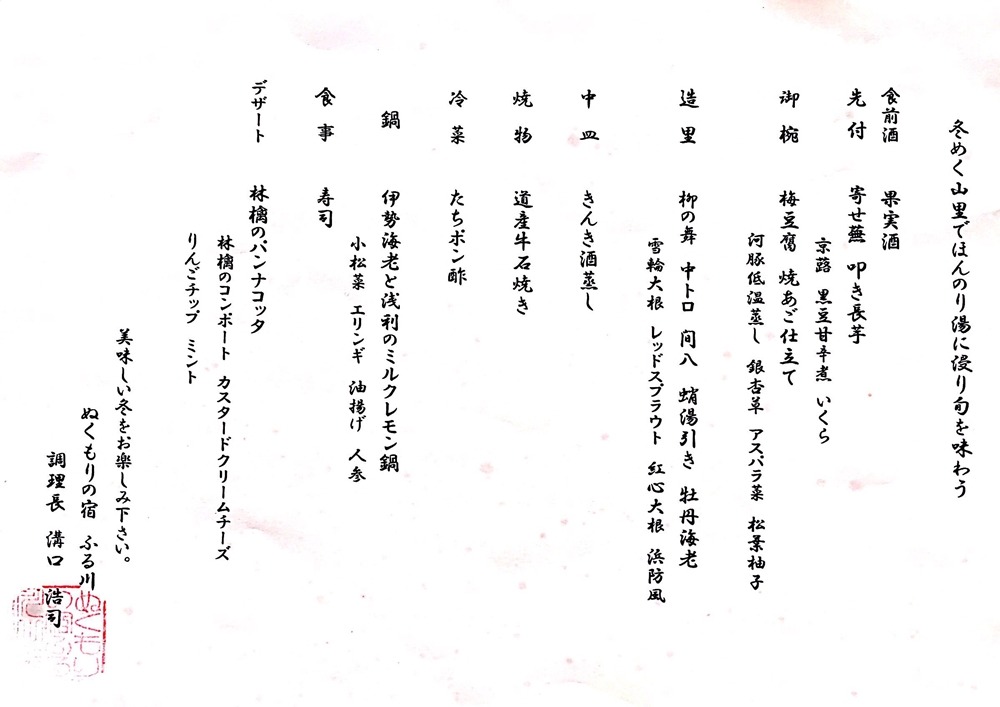 冬めく山里でほんのり湯に浸り旬を味わう
食前酒　果実酒
先付　寄せ蕪　叩き長芋
京蕗　黒豆甘辛煮　いくら
御椀　梅豆腐　焼あご仕立て
河豚低温蒸し　銀杏草　アスパラ菜　松葉柚子
造里　柳の舞　中トロ　間八　蛸湯引き　牡丹海老
雪輪大根　レッドスプラウト　紅心大根　浜防風
中皿　きんき酒蒸し
焼物　道産牛石焼き
冷菜　たちポン酢
鍋　伊勢海老と浅利のミルクレモン鍋
小松菜　エリンギ　油揚げ　人参
食事　寿司
デザート　林檎のパンナコッタ
林檎のコンポート　カスタードクリームチーズ
りんごチップ　ミント
美味しい冬をお楽しみ下さい。
ぬくもりの宿　ふる川
調理長　溝口　浩司